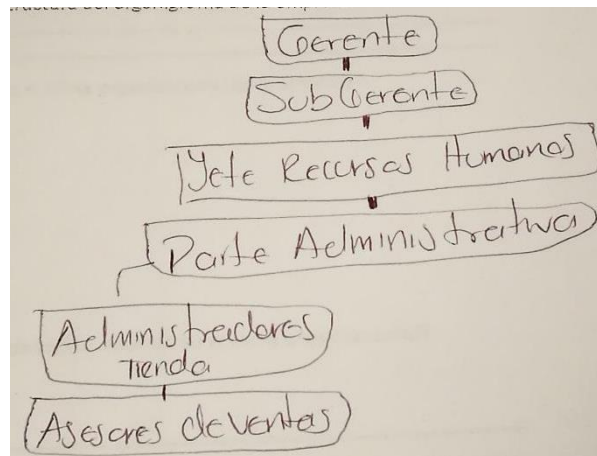 Gerente
SubGerente
Jefe Recursos Humanos
Parte Administrativa
Administradores
Tienda
Asesores de ventas